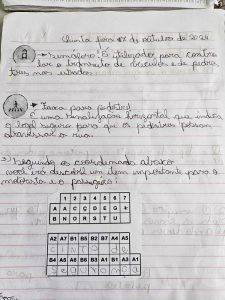 Quinta feira de outubro de 2024
Semáforo: é utilizado para contro
lar o movimento de veículos e de pedes
tres nas
Faixa para pedestre
É uma sinalização horizontal que indica
o local seguro para que os pedestres possam
atravessar a rua.
3) Seguindo as coordenadas abaixo
você irá descobrir um item importante para o
motorista e o passageiro:
1 2 3 4 5 6 7
A A C Ç D E G I
B N O R S T U
A2 A7 B1 B5 B2 B7 A4 A5
C I N T O D E
B4 A5 A6 B6 B3 A1 B1 A3 A1
S E G U R A N Ç A